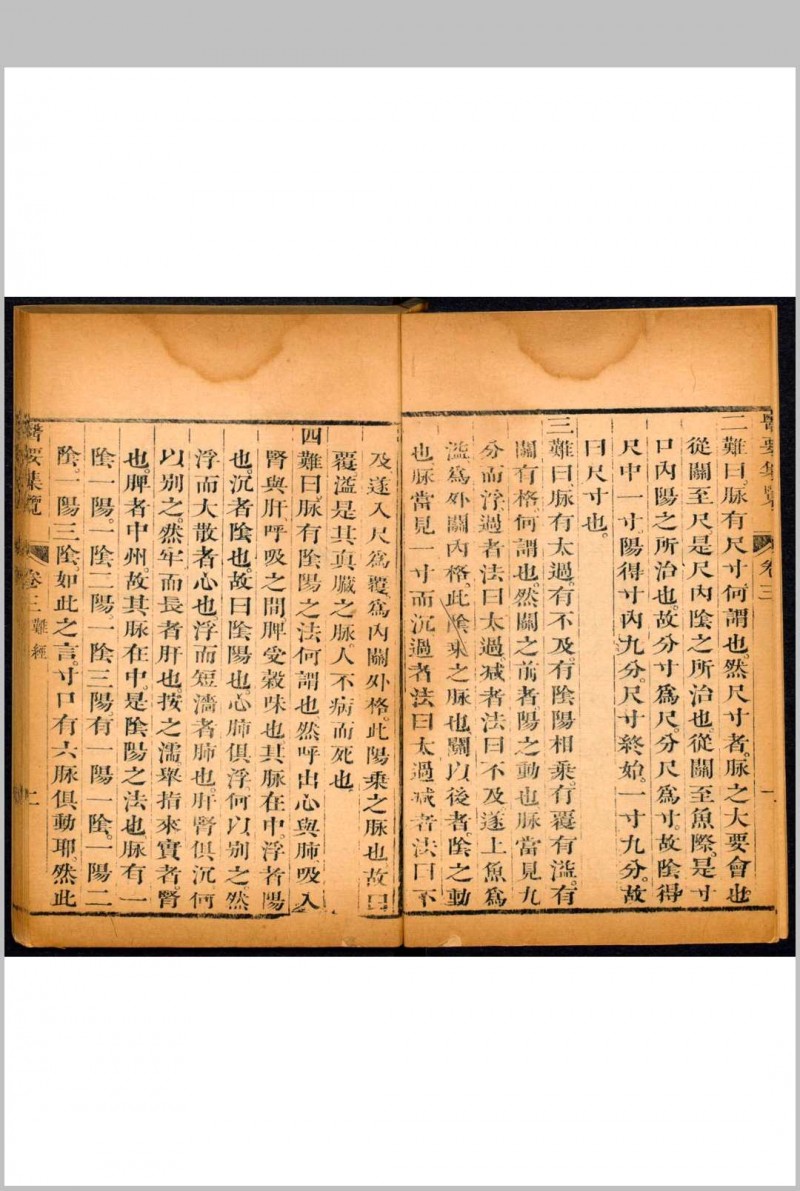 醫要集覽 卷三 一
二難曰。脉有尺寸。何謂也。然尺寸者。脉之大要會也
從關至尺是尺內。陰之所治也。從關至魚際。是寸
口內。陽之所治也。故分寸爲尺。分尺爲寸。故陰得
尺中一寸。陽得寸內九分。尺寸終始。一寸九分。故
曰尺寸也。
三難曰。脉有太過。有不及。有陰陽相乘。有覆有溢。有
關有格。何謂也。然關之前者。陽之動也。脉當見九
分而浮。過者法曰太過。減者法曰不及。遂上魚爲
溢。爲外關內格。此陰乘之脉也。關以後者。陰之動
也。脉當見一寸而沉。過者法曰太過。減者法曰不
及。遂入尺爲覆。爲內關外格。此陽乘之脉也。故曰
覆溢。是其真臟之脉。人不病而死也
四難曰。脉有陰陽之法。何謂也。然呼出心與肺。吸入
腎與肝。呼吸之間。脾受榖味也。其脉在中。浮者陽
也。沉者陰也。故曰陰陽也。心肺俱浮。何以别之。然
浮而大散者心也。浮而短濇者肺也。肝腎俱沉。何
以别之。然牢而長者肝也。按之濡。舉指來實者。腎
也。脾者中州。故其脉在中。是陰陽之法也。脉有一
陰一陽。一陰二陽。一陰三陽。有一陽一陰。一陽二
陰。一陽三陰。如此之言。寸口有六脉俱動耶。然此
醫要集覽 卷三 難經 二